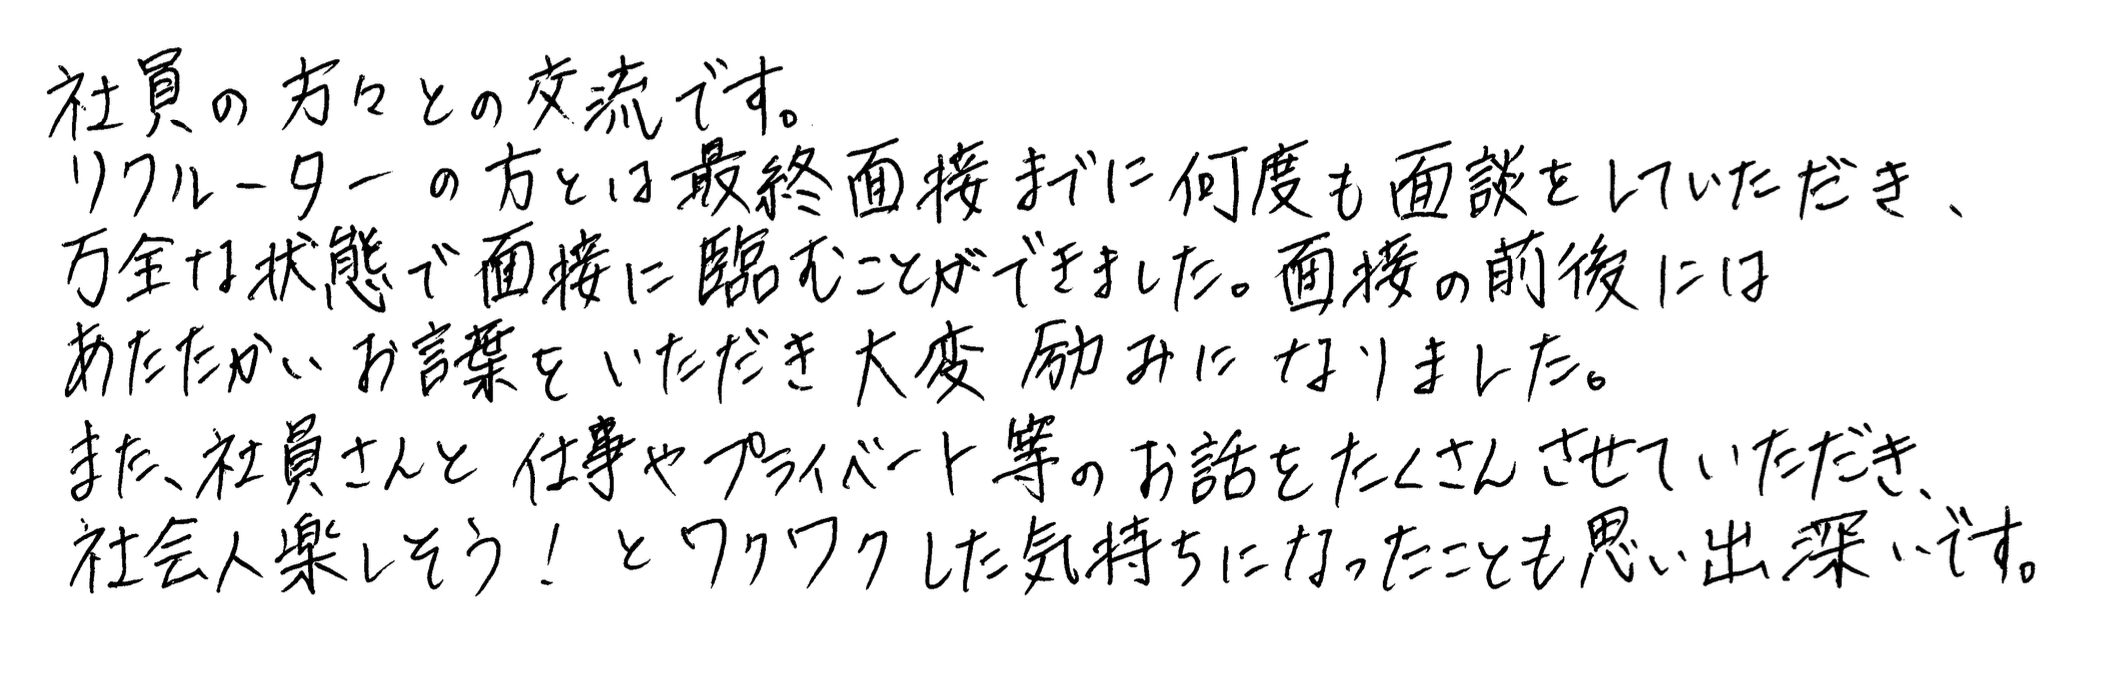 社員の方々との交流です。
リクルーターの方とは最終面接までに何度も面談をしていただき、
万全な状態で面接に臨むことができました。面接の前後には
あたたかいお言葉をいただき大変励みになりました。
また、社員さんと仕事やプライベート等のお話をたくさんさせていただき、
社会人楽しそう！とワクワクした気持ちになったことも思い出深いです。